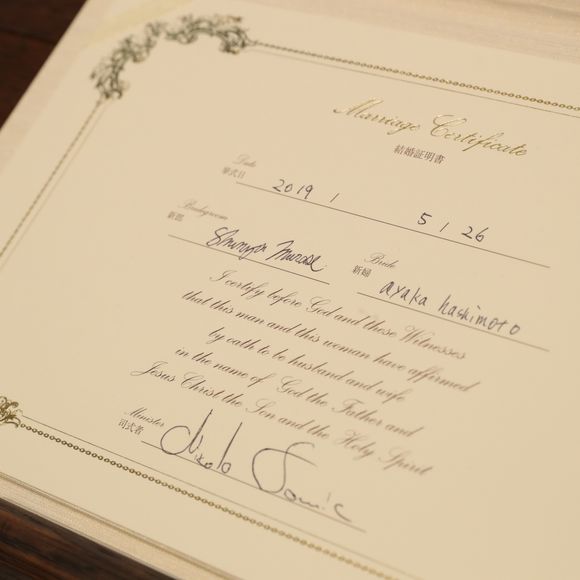 Marriage Certificate
結婚証明書
Date
挙式日 2019 / 5 / 26
Bridegroom
新郎 Murase
Bride
新婦 ayaka hashimoto
I certify before God and these Witnesses
that this man and this woman have affirmed
by oath to be husband and wife
in the name of God the Father and
Jesus Christ the Son and the Holy Spirit
Minister
司式者